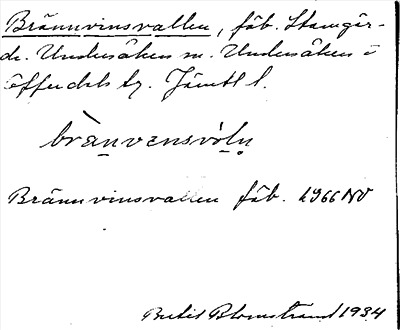 Brännvinsvallen, fäb. Stamgär-
de. Undersåkers sn. Undersåkers o
Offerdals tg. Jämtl l.
brànvensvóln
Brännvinsvallen fäb. 1966 NV
Bertil Blomstrand 1934